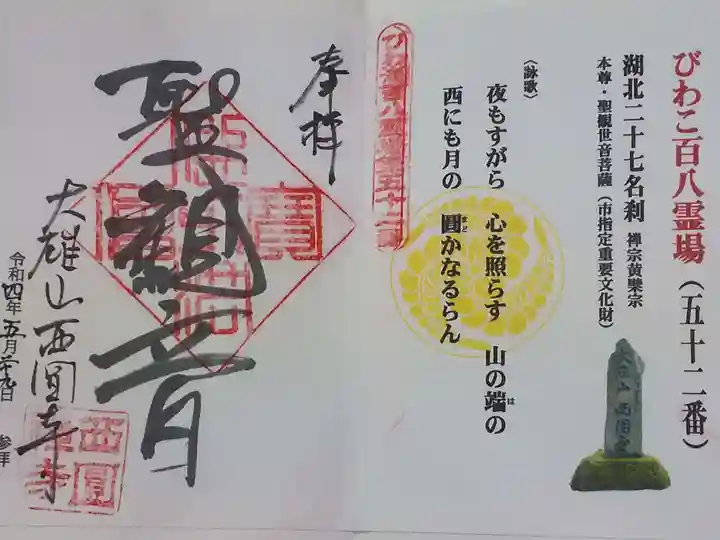 びわこ百八霊場（五十二番）
湖北二十七名刹 禅宗黄檗宗
本尊・聖観世音菩薩（市指定重要文化財）
大雄山西圓寺
〈詠歌〉
夜もすがら 心を照らす 山の端の
は
西にも月の 圓かなるらん
まど
奉拝
聖観音
大雄山西圓寺
西圓
禅寺
令和四年五月廿九日 参拝